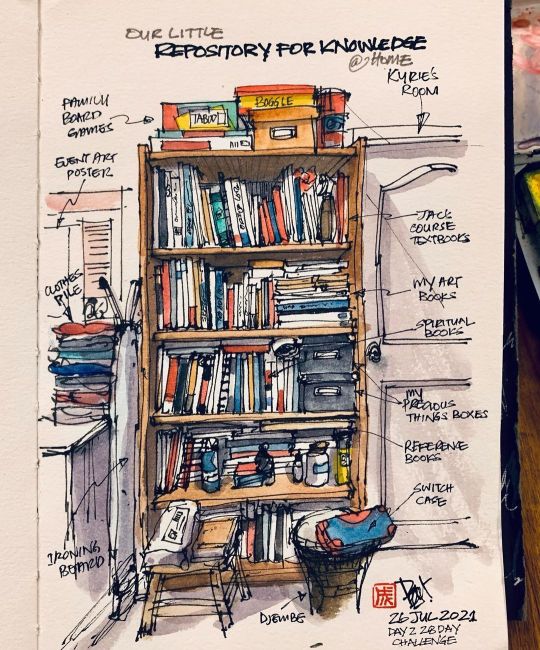 OUR LITTLE
REPOSITORY FOR KNOWLEDGE
@HOME
KYRIE'S
ROOM
FAMILY
BOARD
GAMES
TABOO
BOGGLE
EVENT ART
POSTER
JAC'S
COURSE
TEXTBOOKS
CLOTHES
PILE
MY ART
BOOKS
SPIRITUAL
BOOKS
MY
PRECIOUS
THINGS BOXES
REFERENCE
BOOKS
SWITCH
CASE
IRONING
BOARD
DJEMBE
26 JUL 2021
DAY 2 28 DAY
CHALLENGE